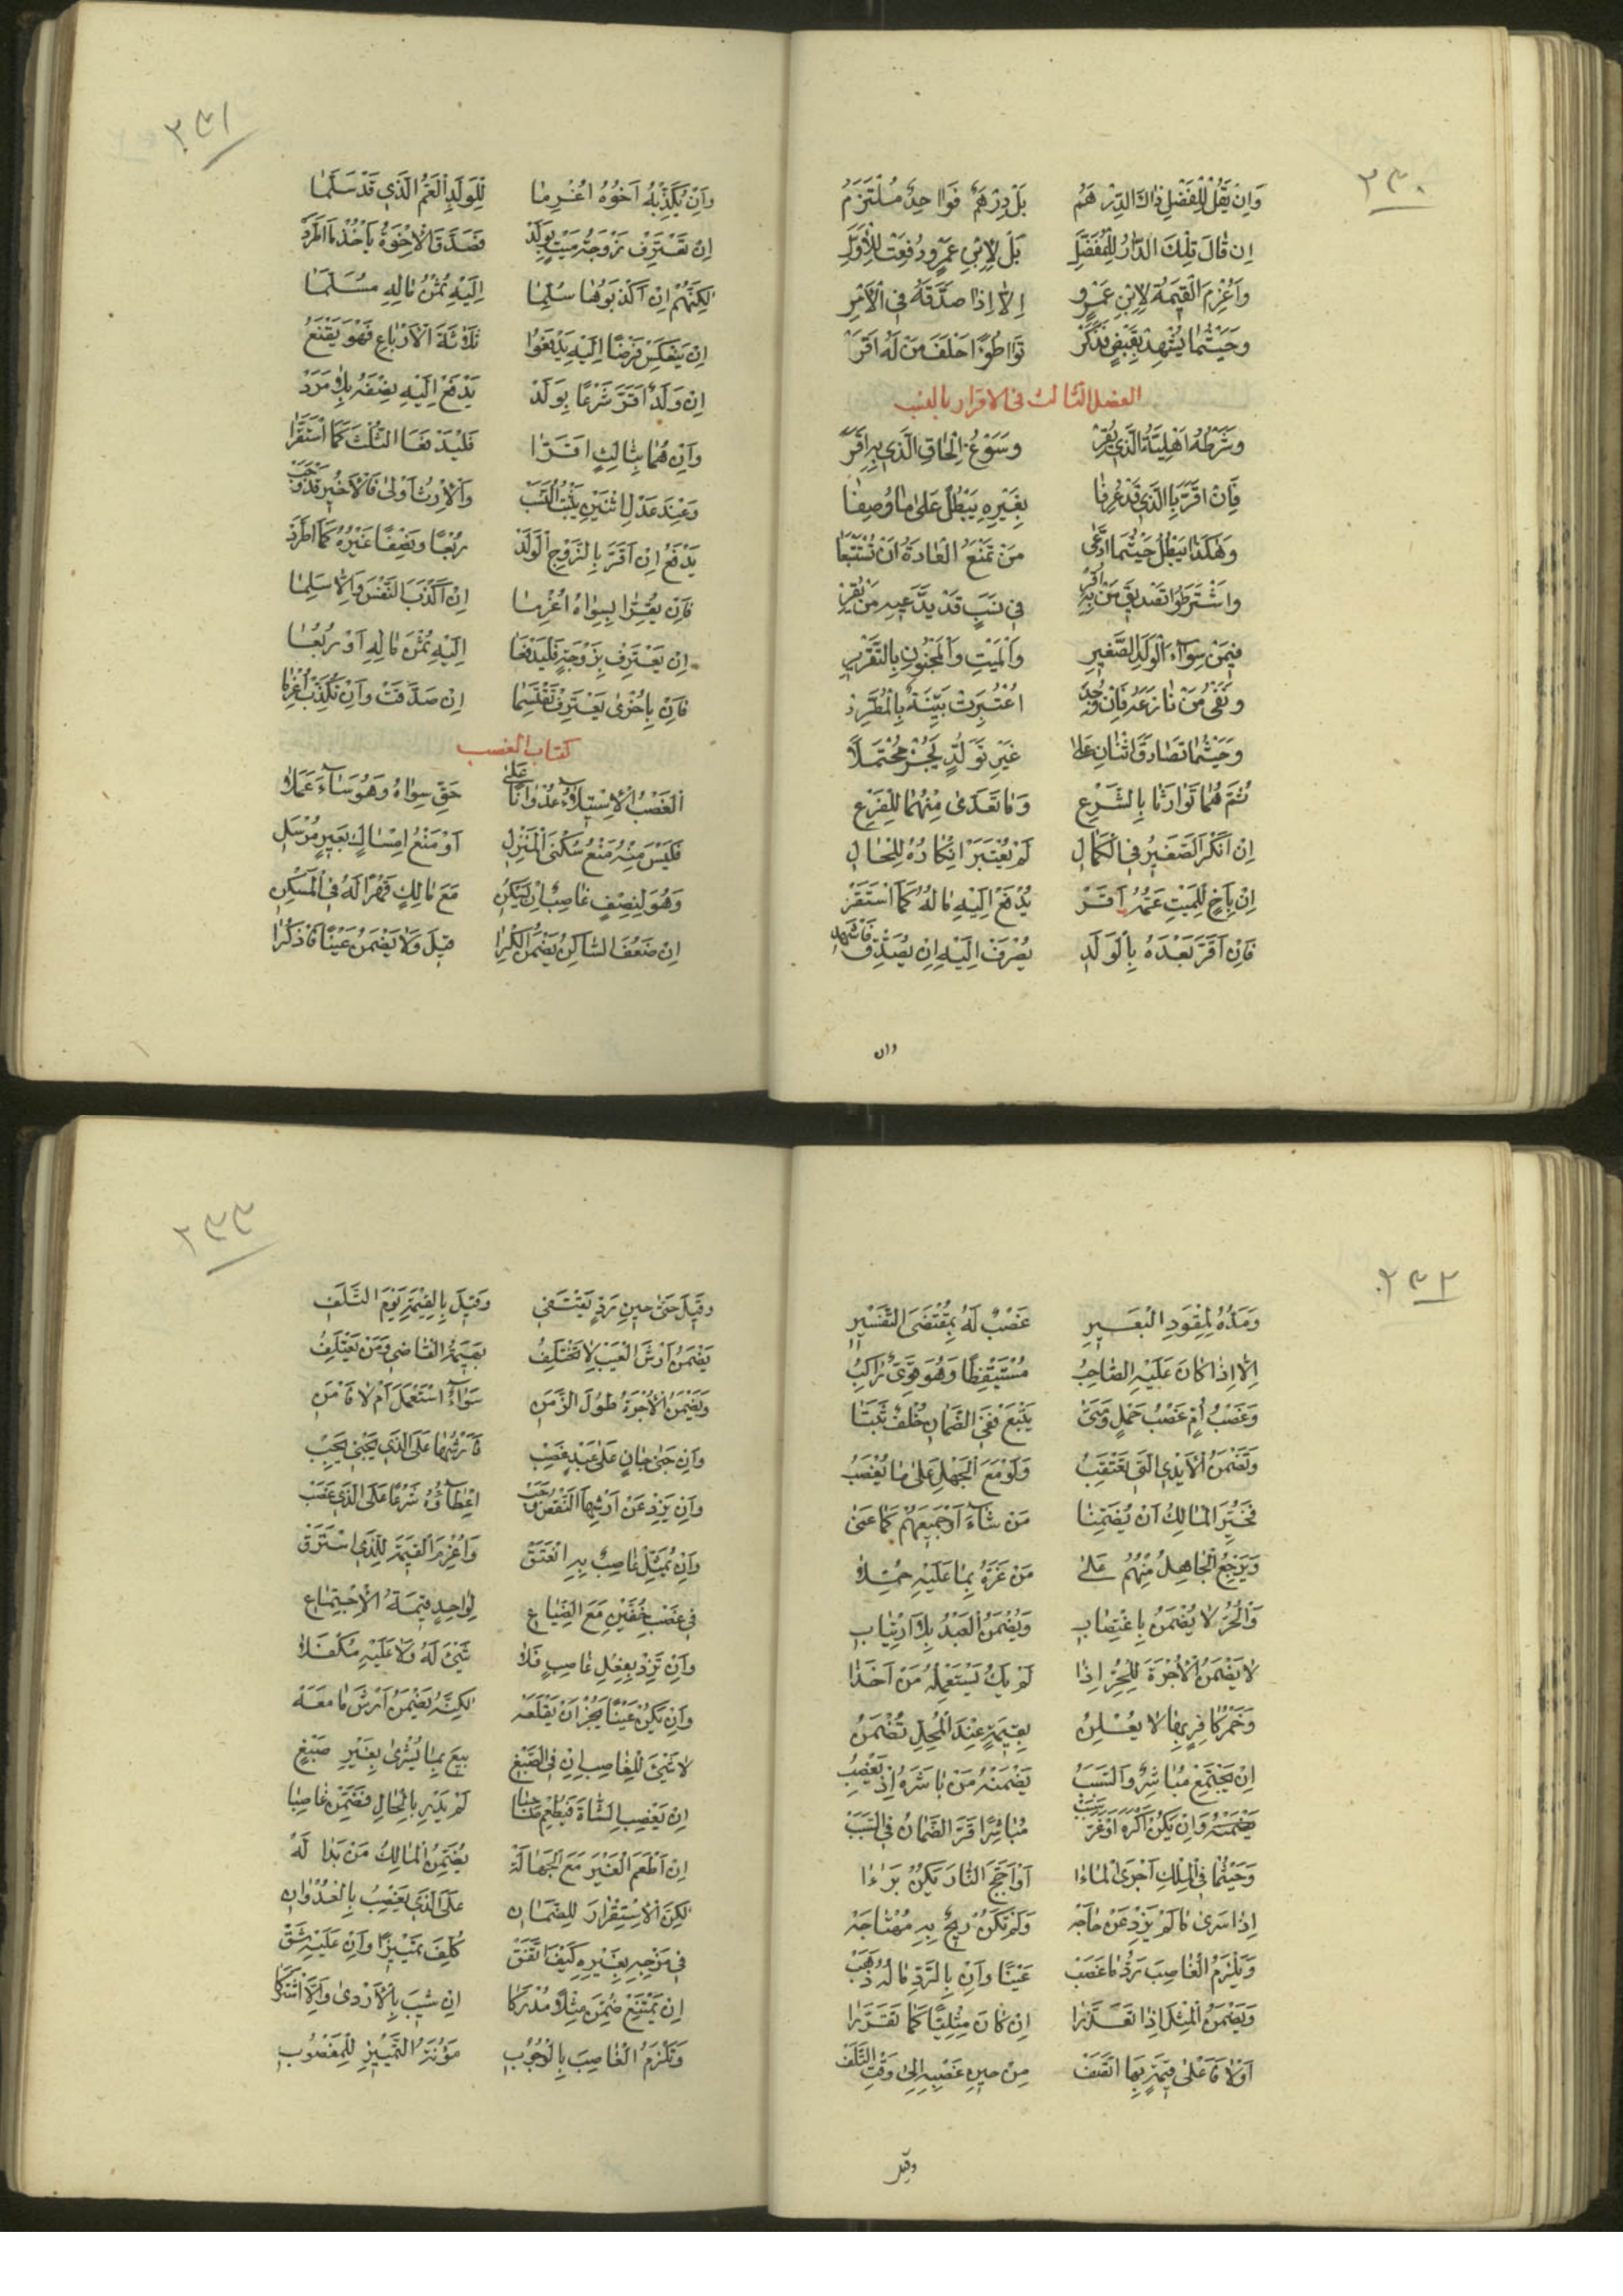 ٢٣٠
وَاِنْ يَقُلْ لِلْفَضْلِ ذٰاكَ الدِّرْهَمُ بَلْ دِرْهَمٌ فَوٰاحِدٌ مُلْتَزَمُ
اِنْ قٰالَ تِلْكَ الدّٰارُ لِلْمُفَضَّلِ بَلْ لِابْنِ عَمْرٍو دُفِعَتْ لِلْاَوَّلِ
وَاُغْرِمَ الْقِيمَةَ لِابْنِ عَمْرٍو اِلّٰا اِذٰا صَدَّقَهُ فِي الْاَمْرِ
وَحَيْثُمٰا يُشْهِدْ بِقَبْضٍ فَذَكَرْ تَوٰاطُؤًا حَلَفَ مَنْ لَهُ اَقَرْ
الفصل الثالث فى الاقرار بالنسب
وَشَرْطُهُ اَهْلِيَّةُ الَّذِي يُقِرْ وَسَوْغُ اِلْحٰاقِ الَّذِي بِهِ اَقَرْ
فَاِنْ اَقَرَّ بِالَّذِي قَدْ عُرِفٰا بِغَيْرِهِ يَبْطُلْ عَلٰى مٰا وُصِفٰا
وَهٰكَذٰا يَبْطُلُ حَيْثُمَا ادَّعٰى مَنْ تَمْنَعُ الْعٰادَةُ اَنْ تُسْتَتْبَعٰا
وَاشْتَرَطُوا تَصْدِيقَ مَنْ بِهِ اُقِرْ فِي نَسَبٍ قَدْ يَدَّعِيهِ مَنْ يُقِرْ
فِيمَنْ سِوٰآءَ الْوَلَدِ الصَّغِيرِ وَالْمَيْتِ وَالْمَجْنُونِ بِالتَّقْرِيرِ
وَنَفْيُ مَنْ نٰازَعَهُ فَاِنْ وُجِدْ اعْتُبِرَتْ بَيِّنَةٌ بِالْمُطَّرِدْ
وَحَيْثُمٰا تَصٰادَقَ اثْنٰانِ عَلٰى غَيْرِ تَوَلُّدٍ يَجُزْ مُحْتَمَلًا
ثُمَّ هُمٰا تَوٰارَثٰا بِالشَّرْعِ وَمٰا تَعَدّٰى مِنْهُمٰا لِلْفَرْعِ
اِنْ اَنْكَرَ الصَّغِيرُ فِي الْكَمٰالِ لَمْ يُعْتَبَرْ اِنْكٰارُهُ لِلْحٰالِ
اِنْ بِاَخٍ لِلْمَيْتِ عَمُّهُ اَقَرْ يُدْفَعْ اِلَيْهِ مٰالُهُ كَمَا اسْتَقَرْ
فَاِنْ اَقَرَّ بَعْدَهُ بِالْوَلَدِ يُصْرَفْ اِلَيْهِ اِنْ يُصَدِّقْ فَاشْهَدِ
وان
٢٣١
وَاِنْ يُكَذِّبْهُ اَخُوهُ اُغْرِمٰا لِلْوَلَدِ الْعَمُّ الَّذِي قَدْ سَلَّمٰا
اِنْ تَعْتَرِفْ زَوْجَةُ مَيْتٍ بِوَلَدْ فَصَدَّقَ الْاِخْوَةُ يَأْخُذْ مَا اطَّرَدْ
لٰكِنَّهُمْ اِنْ اَكْذَبُوهٰا سَلِمٰا اِلَيْهِ ثُمْنُ مٰالِهِ مُسَلَّمٰا
اِنْ يَنْعَكِسْ فَرْضًا اِلَيْهِ يَدْفَعُوا ثَلٰاثَةَ الْاَرْبٰاعِ فَهْوَ يَقْنَعُ
اِنْ وَلَدٌ اَقَرَّ شَرْعًا بِوَلَدْ يَدْفَعْ اِلَيْهِ نِصْفَهُ بِلٰا مَرَدْ
وَاِنْ هُمٰا بِثٰالِثٍ اَقَرّٰا فَلْيَدْفَعَا الثُّلْثَ كَمَا اسْتَقَرّٰا
وَعِنْدَ عَدْلِ اثْنَيْنِ يَثْبُتُ النَّسَبْ وَالْاِرْثُ اَوْلٰى فَالْاَخِيرُ قَدْ وَجَبْ
يَدْفَعُ اِنْ اَقَرَّ بِالزَّوْجِ الْوَلَدْ رُبْعًا وَنِصْفًا غَيْرُهُ كَمَا اطَّرَدْ
فَاِنْ يُقِرّٰا بِسِوٰاهُ اُغْرِمٰا اِنْ اَكْذَبَ النَّفْسَ وَاِلّٰا سَلِمٰا
اِنْ يَعْتَرِفْ بِزَوْجَةٍ فَلْيَدْفَعٰا اِلَيْهِ ثُمْنَ مٰالِهِ اَوْ رُبُعٰا
فَاِنْ بِاُخْرٰى يَعْتَرِفْ تَقْتَسِمٰا اِنْ صَدَّقَتْ وَاِنْ تُكَذِّبْ اُغْرِمٰا
كتاب الغصب
اَلْغَصْبُ الْاِسْتِيلٰآءُ عُدْوٰانًا عَلٰى حَقِّ سِوٰاهُ وَهُوَ سٰآءَ عَمَلًا
فَلَيْسَ مِنْهُ مَنْعُ سُكْنَى الْمَنْزِلِ اَوْ مَنْعُ اِمْسٰاكِ بَعِيرٍ مُرْسَلِ
وَهُوَ لِنِصْفٍ غٰاصِبٌ اِنْ يَسْكُنِ مَعَ مٰالِكٍ قَهْرًا لَهُ فِي الْمَسْكَنِ
اِنْ ضَعُفَ السّٰاكِنُ يَضْمَنُ الْكِرٰا قِيلَ وَلٰا يَضْمَنُ عَيْنًا فَاذْكُرٰا
٢٣٢
وَمَدُّهُ لِمِقْوَدِ الْبَعِيرِ غَصْبٌ لَهُ بِمُقْتَضَى التَّفْسِيرِ
اِلّٰا اِذٰا كٰانَ عَلَيْهِ الصّٰاحِبُ مُسْتَيْقِظًا وَهُوَ قَوِيٌّ رٰاكِبُ
وَغَصْبُ اُمٍّ غَصْبُ حَمْلٍ وَمَتٰى يَتْبَعْ فَفِي الضَّمٰانِ خُلْفٌ ثَبَتٰا
وَتَضْمَنُ الْاَيْدِي الَّتِي تَعْتَقِبُ وَلَوْ مَعَ الْجَهْلِ عَلٰى مٰا يُغْصَبُ
فَخُيِّرَ الْمٰالِكُ اَنْ يُضَمِّنٰا مَنْ شٰآءَ اَوْ جَمِيعَهُمْ كَمٰا عَنٰى
وَيَرْجِعُ الْجٰاهِلُ مِنْهُمُ عَلٰى مَنْ غَرَّهُ بِمٰا عَلَيْهِ حُمِّلٰا
وَالْحُرُّ لٰا يُضْمَنُ بِاغْتِصٰابِ وَيُضْمَنُ الْعَبْدُ بِلَا ارْتِيٰابِ
لٰا يَضْمَنُ الْاُجْرَةَ لِلْحُرِّ اِذٰا لَمْ يَكُ يَسْتَعْمِلُهُ مَنْ اَخَذٰا
وَخَمْرُ كٰافِرٍ بِهٰا لٰا يُعْلِنُ بِقِيمَةٍ عِنْدَ الْمُحِلِّ تُضْمَنُ
اِنْ يَجْتَمِعْ مُبٰاشِرٌ وَالسَّبَبُ يَضْمَنْهُ مَنْ بٰاشَرَهُ اِذْ يَغْصِبُ
وَاِنْ يَكُنْ اَكْرَهَ اَوْ غَرَّ مُبٰاشِرًا قَرَّ الضَّمٰانُ فِي السَّبَبْ
وَحَيْثُمٰا فِي الْمِلْكِ اَجْرَى الْمٰاءٰا اَوْ اَجَّجَ النّٰارَ يَكُنْ بَرٰاءٰا
اِذٰا سَرٰى مٰا لَمْ يَزِدْ عَنْ حٰاجَهْ وَلَمْ تَكُنْ رِيحٌ بِهِ مُهْتٰاجَهْ
وَيَلْزَمُ الْغٰاصِبَ رَدُّ مٰا غَصَبْ عَيْنًا وَاِنْ بِالرَّدِّ مٰالُهُ ذَهَبْ
وَيَضْمَنُ الْمِثْلَ اِذٰا تَعَذَّرٰا اِنْ كٰانَ مِثْلِيًّا كَمٰا تَقَرَّرٰا
اَوْلٰا فَاَعْلٰى قِيمَةٍ بِهَا اتَّصَفْ مِنْ حِينِ غَصْبِهِ اِلٰى وَقْتِ التَّلَفْ
وقيل
٢٣٣
وَقِيلَ حَتّٰى حِينِ رَدٍّ يَقْتَفِي وَقِيلَ بِالْقِيمَةِ يَوْمَ التَّلَفِ
يَضْمَنُ اَرْشَ الْعَيْبِ لٰا تَخْتَلِفُ بَهِيمَةُ الْقٰاضِي وَمَنْ يَعْتَلِفُ
وَيَضْمَنُ الْاُجْرَةَ طُولَ الزَّمَنِ سَوٰآءٌ اسْتَعْمَلَ اَمْ لٰا فَامْنُنِ
وَاِنْ جَنٰى جٰانٍ عَلٰى عَبْدٍ غُصِبْ فَاَرْشُهٰا عَلَى الَّذِي يَجْنِي يَجِبْ
وَاِنْ يَزِدْ عَنْ اَرْشِهَا النَّقْصُ وَجَبْ اِعْطٰآؤُهُ شَرْعًا عَلَى الَّذِي غَصَبْ
وَاِنْ يُمَثِّلْ غٰاصِبٌ بِهِ انْعَتَقْ وَاُغْرِمَ الْقِيمَةَ لِلَّذِي اسْتَرَقْ
فِي غَصْبِ خُفَّيْنِ مَعَ الضَّيٰاعِ لِوٰاحِدٍ قِيمَةُ الْاِجْتِمٰاعِ
وَاِنْ تَزِدْ بِفِعْلِ غٰاصِبٍ فَلٰا شَيْءَ لَهُ وَلٰا عَلَيْهِ مُكْفَلًا
وَاِنْ يَكُنْ عَيْنًا يَجُزْ اَنْ يَقْلَعَهْ لٰكِنَّهُ يَضْمَنُ اَرْشَ مٰا مَعَهْ
لٰا شَيْءَ لِلْغٰاصِبِ اِنْ فِي الصَّبْغِ بِيعَ بِمٰا يُشْرٰى بِغَيْرِ صَبْغِ
اِنْ يَغْصِبِ الشّٰاةَ فَيُطْعِمْ لَمْ يَدْرِ بِالْحٰالِ فَضَمِّنْ غٰاصِبًا
اِنْ اَطْعَمَ الْغَيْرَ مَعَ الْجَهٰالَهْ يُضَمِّنُ الْمٰالِكُ مَنْ بَدٰا لَهْ
لٰكِنَّ الْاِسْتِقْرٰارَ لِلضَّمٰانِ عَلَى الَّذِي يَغْصِبُ بِالْعُدْوٰانِ
فِي مَزْجِهِ بِغَيْرِهِ كَيْفَ اتَّفَقْ كُلِّفَ تَمْيِيزًا وَاِنْ عَلَيْهِ شَقْ
اِنْ يَمْتَنِعْ ضُمِّنَ مِثْلًا مُدْرَكًا اِنْ شِيبَ بِالْاَرْدٰى وَاِلَّا اشْتَرَكٰا
وَتَلْزَمُ الْغٰاصِبَ بِالْوُجُوبِ مَؤُنَةُ التَّمْيِيزِ لِلْمَغْصُوبِ